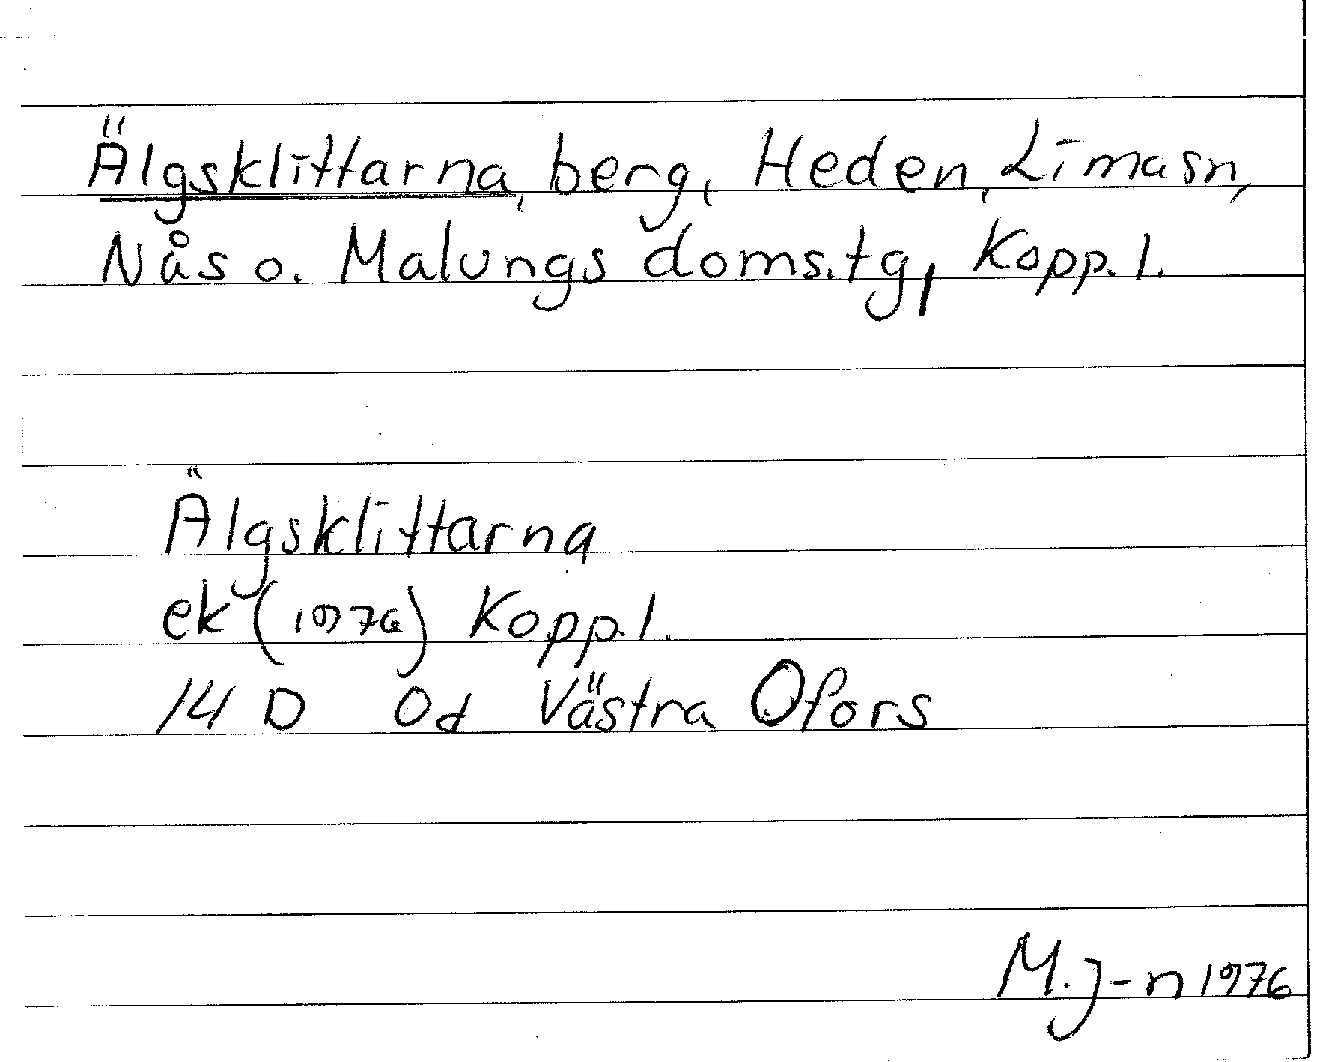 Älgsklittarna, berg, Heden, Lima sn,
Nås o. Malungs doms.tg, Kopp. l.
Älgsklittarna
ek (1976) Kopp. l.
14 D 0d Västra Ofors
M. J-n 1976